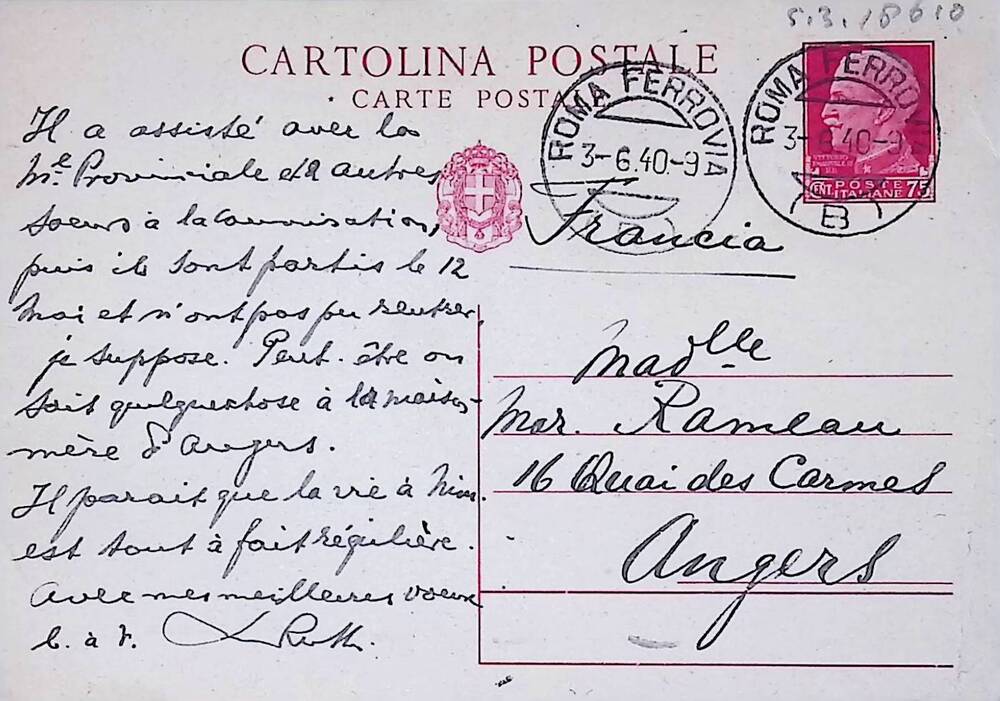 5.3.18610
CARTOLINA POSTALE
CARTE POSTALE
ROMA FERROVIA
3-6.40-9
ROMA FERROVIA
3-6.40-9
B
VITTORIO
EMANUELE III
CENT. POSTE 75
ITALIANE
Francia
Il a assisté avec la
Me Provinciale et 2 autres
soeurs à la canonisation,
puis ils sont partis le 12
mai et n'ont pas pu rentrer,
je suppose. Peut-être on
sait quelque chose à la maison
mère d'Angers.
Il parait que la vie à
est tout à fait régulière.
Avec mes meilleurs voeux
b. à v.
Madlle
Mar. Rameau
16 Quai des Carmes
Angers